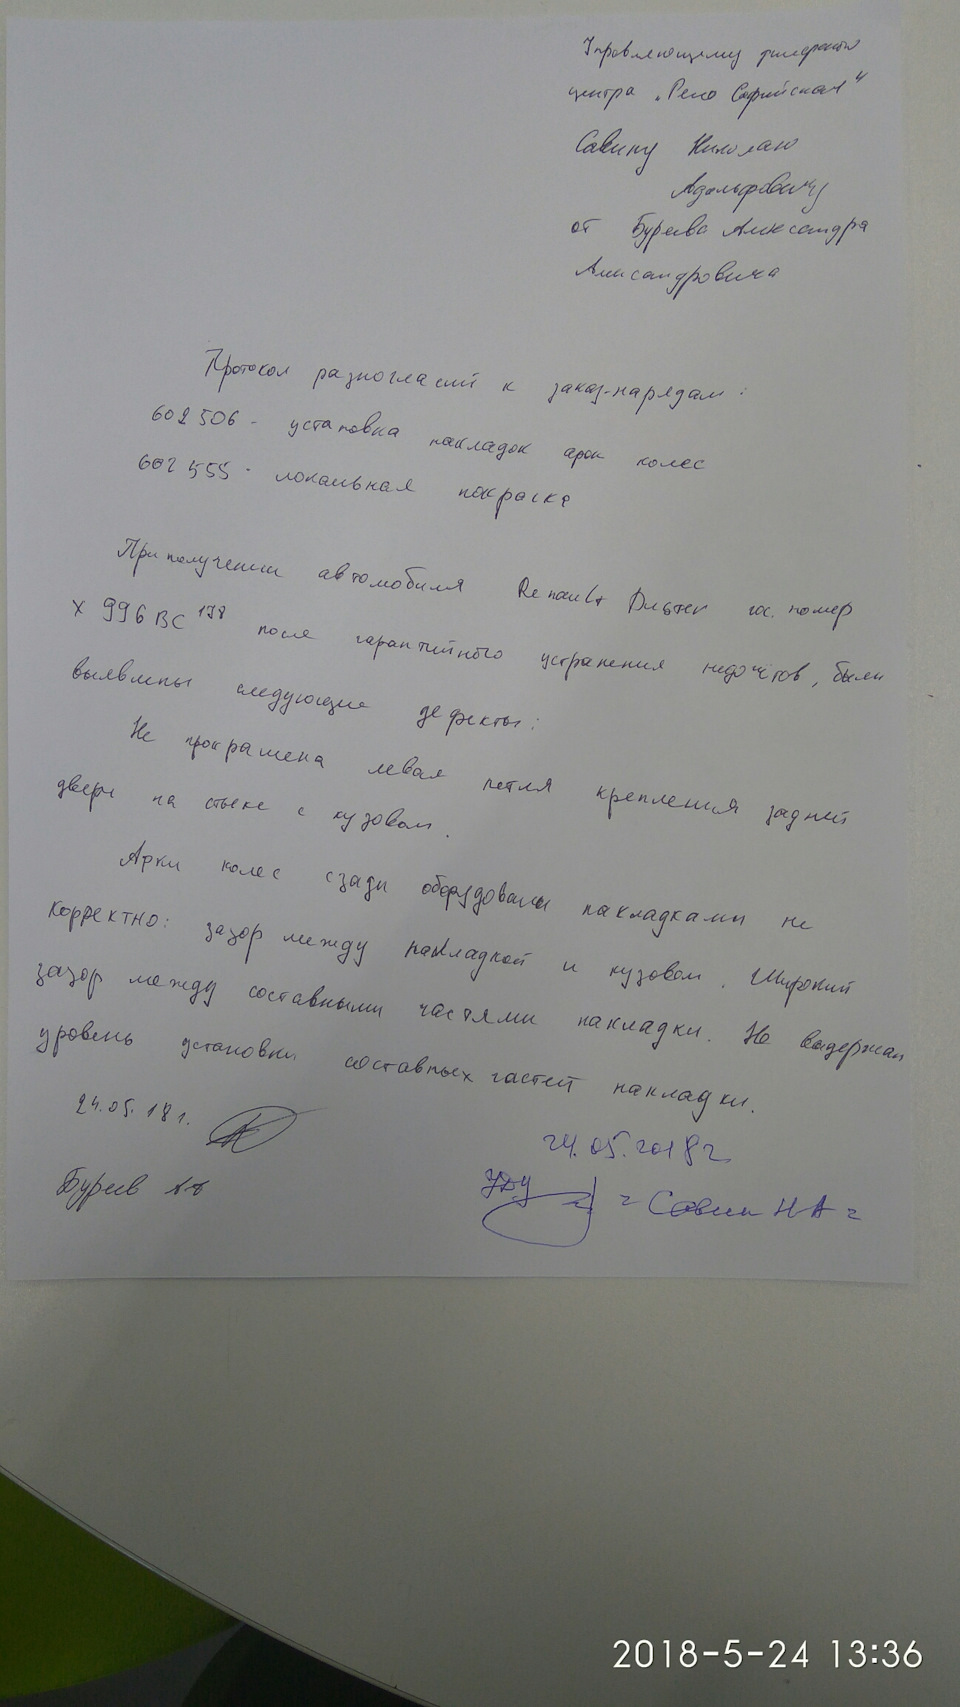 Управляющему дилерского
центра „Рено Софийская"
Савину Николаю
Адольфовичу
от Буреева Александра
Александровича
Протокол разногласий к заказ-нарядам:
602506 - установка накладок арок колес
602555 - локальная покраска
При получении автомобиля Renault Duster гос. номер
х 996 ВС 178 после гарантийного устранения недочётов, были
выявлены следующие дефекты:
Не прокрашена левая петля крепления задней
двери на стыке с кузовом.
Арки колес сзади оборудованы накладками не
корректно: зазор между накладкой и кузовом. Широкий
зазор между составными частями накладки. Не выдержан
уровень установки составных частей накладки.
24.05.18 г.
24.05.2018 г
Буреев АА
Савин НА
2018-5-24 13:36